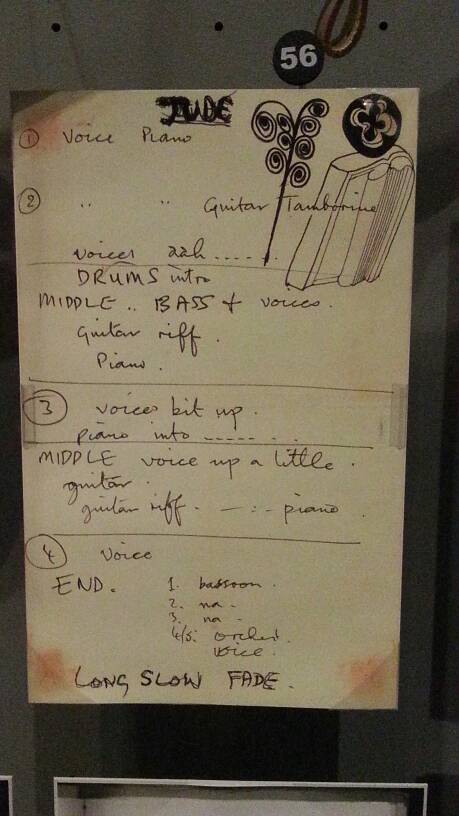 56
JUDE
① Voice Piano
② " " Guitar Tamborine
voices aah ......
DRUMS intro
MIDDLE .. BASS + voices.
Guitar riff.
Piano.
③ voices bit up.
piano into .......
MIDDLE voice up a little.
guitar.
guitar riff. —:- piano
④ voice
END. 1. bassoon.
2. na -
3. na -
4/5. orchest.
voice.
LONG SLOW FADE.